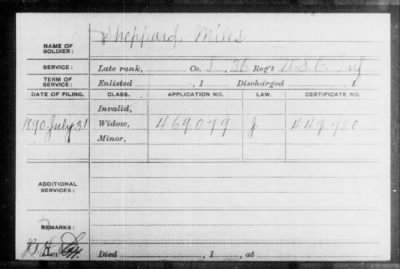 NAME OF SOLDIER: Sheppard, Miles
SERVICE: Late rank, Co. I, 36 Reg't U.S.C. Inf
TERM OF SERVICE: Enlisted , 1 Discharged , 1
DATE OF FILING. CLASS. APPLICATION NO. LAW. CERTIFICATE NO.
Invalid,
1890 July 31 Widow, 469.079
Minor,
ADDITIONAL SERVICES:
REMARKS:
Died , 1 , at